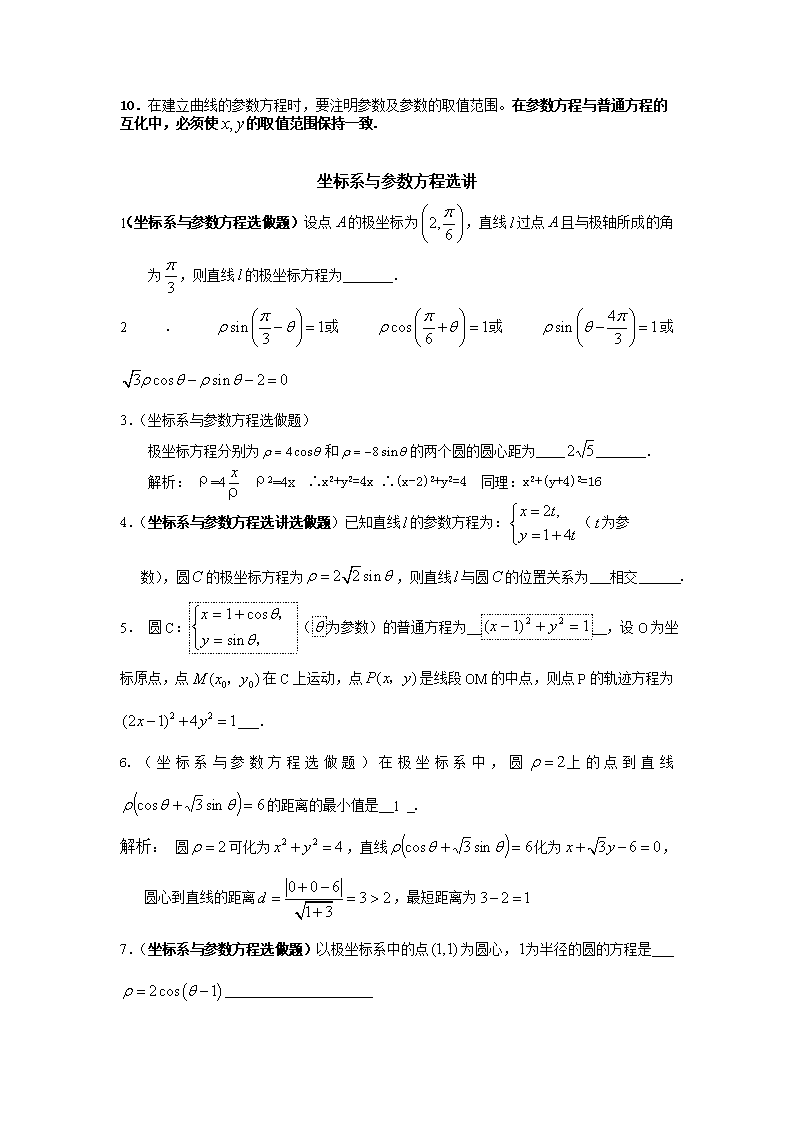 10．在建立曲线的参数方程时，要注明参数及参数的取值范围。在参数方程与普通方程的
互化中，必须使 x, y 的取值范围保持一致．
坐标系与参数方程选讲
1(坐标系与参数方程选做题）设点 A 的极坐标为 (2, π/6)，直线 l 过点 A 且与极轴所成的角
为 π/3，则直线 l 的极坐标方程为_______．
2 ． ρsin(π/3−θ)=1或 ρcos(π/6+θ)=1或 ρsin(θ−4π/3)=1或
√3ρcosθ−ρsinθ−2=0
3.（坐标系与参数方程选做题）
极坐标方程分别为 ρ=4cosθ 和 ρ=−8sinθ 的两个圆的圆心距为____2√5_______．
解析： ρ=4x/ρ ρ²=4x ∴x²+y²=4x ∴(x-2)²+y²=4 同理：x²+(y+4)²=16
4.（坐标系与参数方程选讲选做题）已知直线 l 的参数方程为：{x=2t, y=1+4t（t 为参
数），圆 C 的极坐标方程为 ρ=2√2sinθ，则直线 l 与圆 C 的位置关系为___相交______．
5． 圆 C：{x=1+cosθ， y=sinθ，（θ为参数）的普通方程为__(x−1)²+y²=1__，设 O 为坐
标原点，点 M(x₀，y₀) 在 C 上运动，点 P(x，y) 是线段 OM 的中点，则点 P 的轨迹方程为
(2x−1)²+4y²=1___．
6.（坐标系与参数方程选做题）在极坐标系中，圆 ρ=2上的点到直线
ρ(cosθ+√3sinθ)=6的距离的最小值是__1 _．
解析： 圆 ρ=2 可化为 x²+y²=4，直线 ρ(cosθ+√3sinθ)=6化为 x+√3y−6=0，
圆心到直线的距离 d=|0+0−6|/√(1+3)=3>2，最短距离为 3−2=1
7.（坐标系与参数方程选做题）以极坐标系中的点 (1,1) 为圆心，1为半径的圆的方程是___
ρ=2cos(θ−1)_____________________